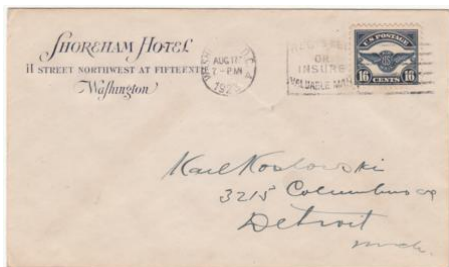 SHOREHAM HOTEL
H STREET NORTHWEST AT FIFTEENTH
Washington
AUG 17
7-PM
192
OR
INSURE
VALUABLE MAIL
U.S. POSTAGE
16 CENTS 16
Karl Koslowski
3215 Columbus av
Detroit
Mich.